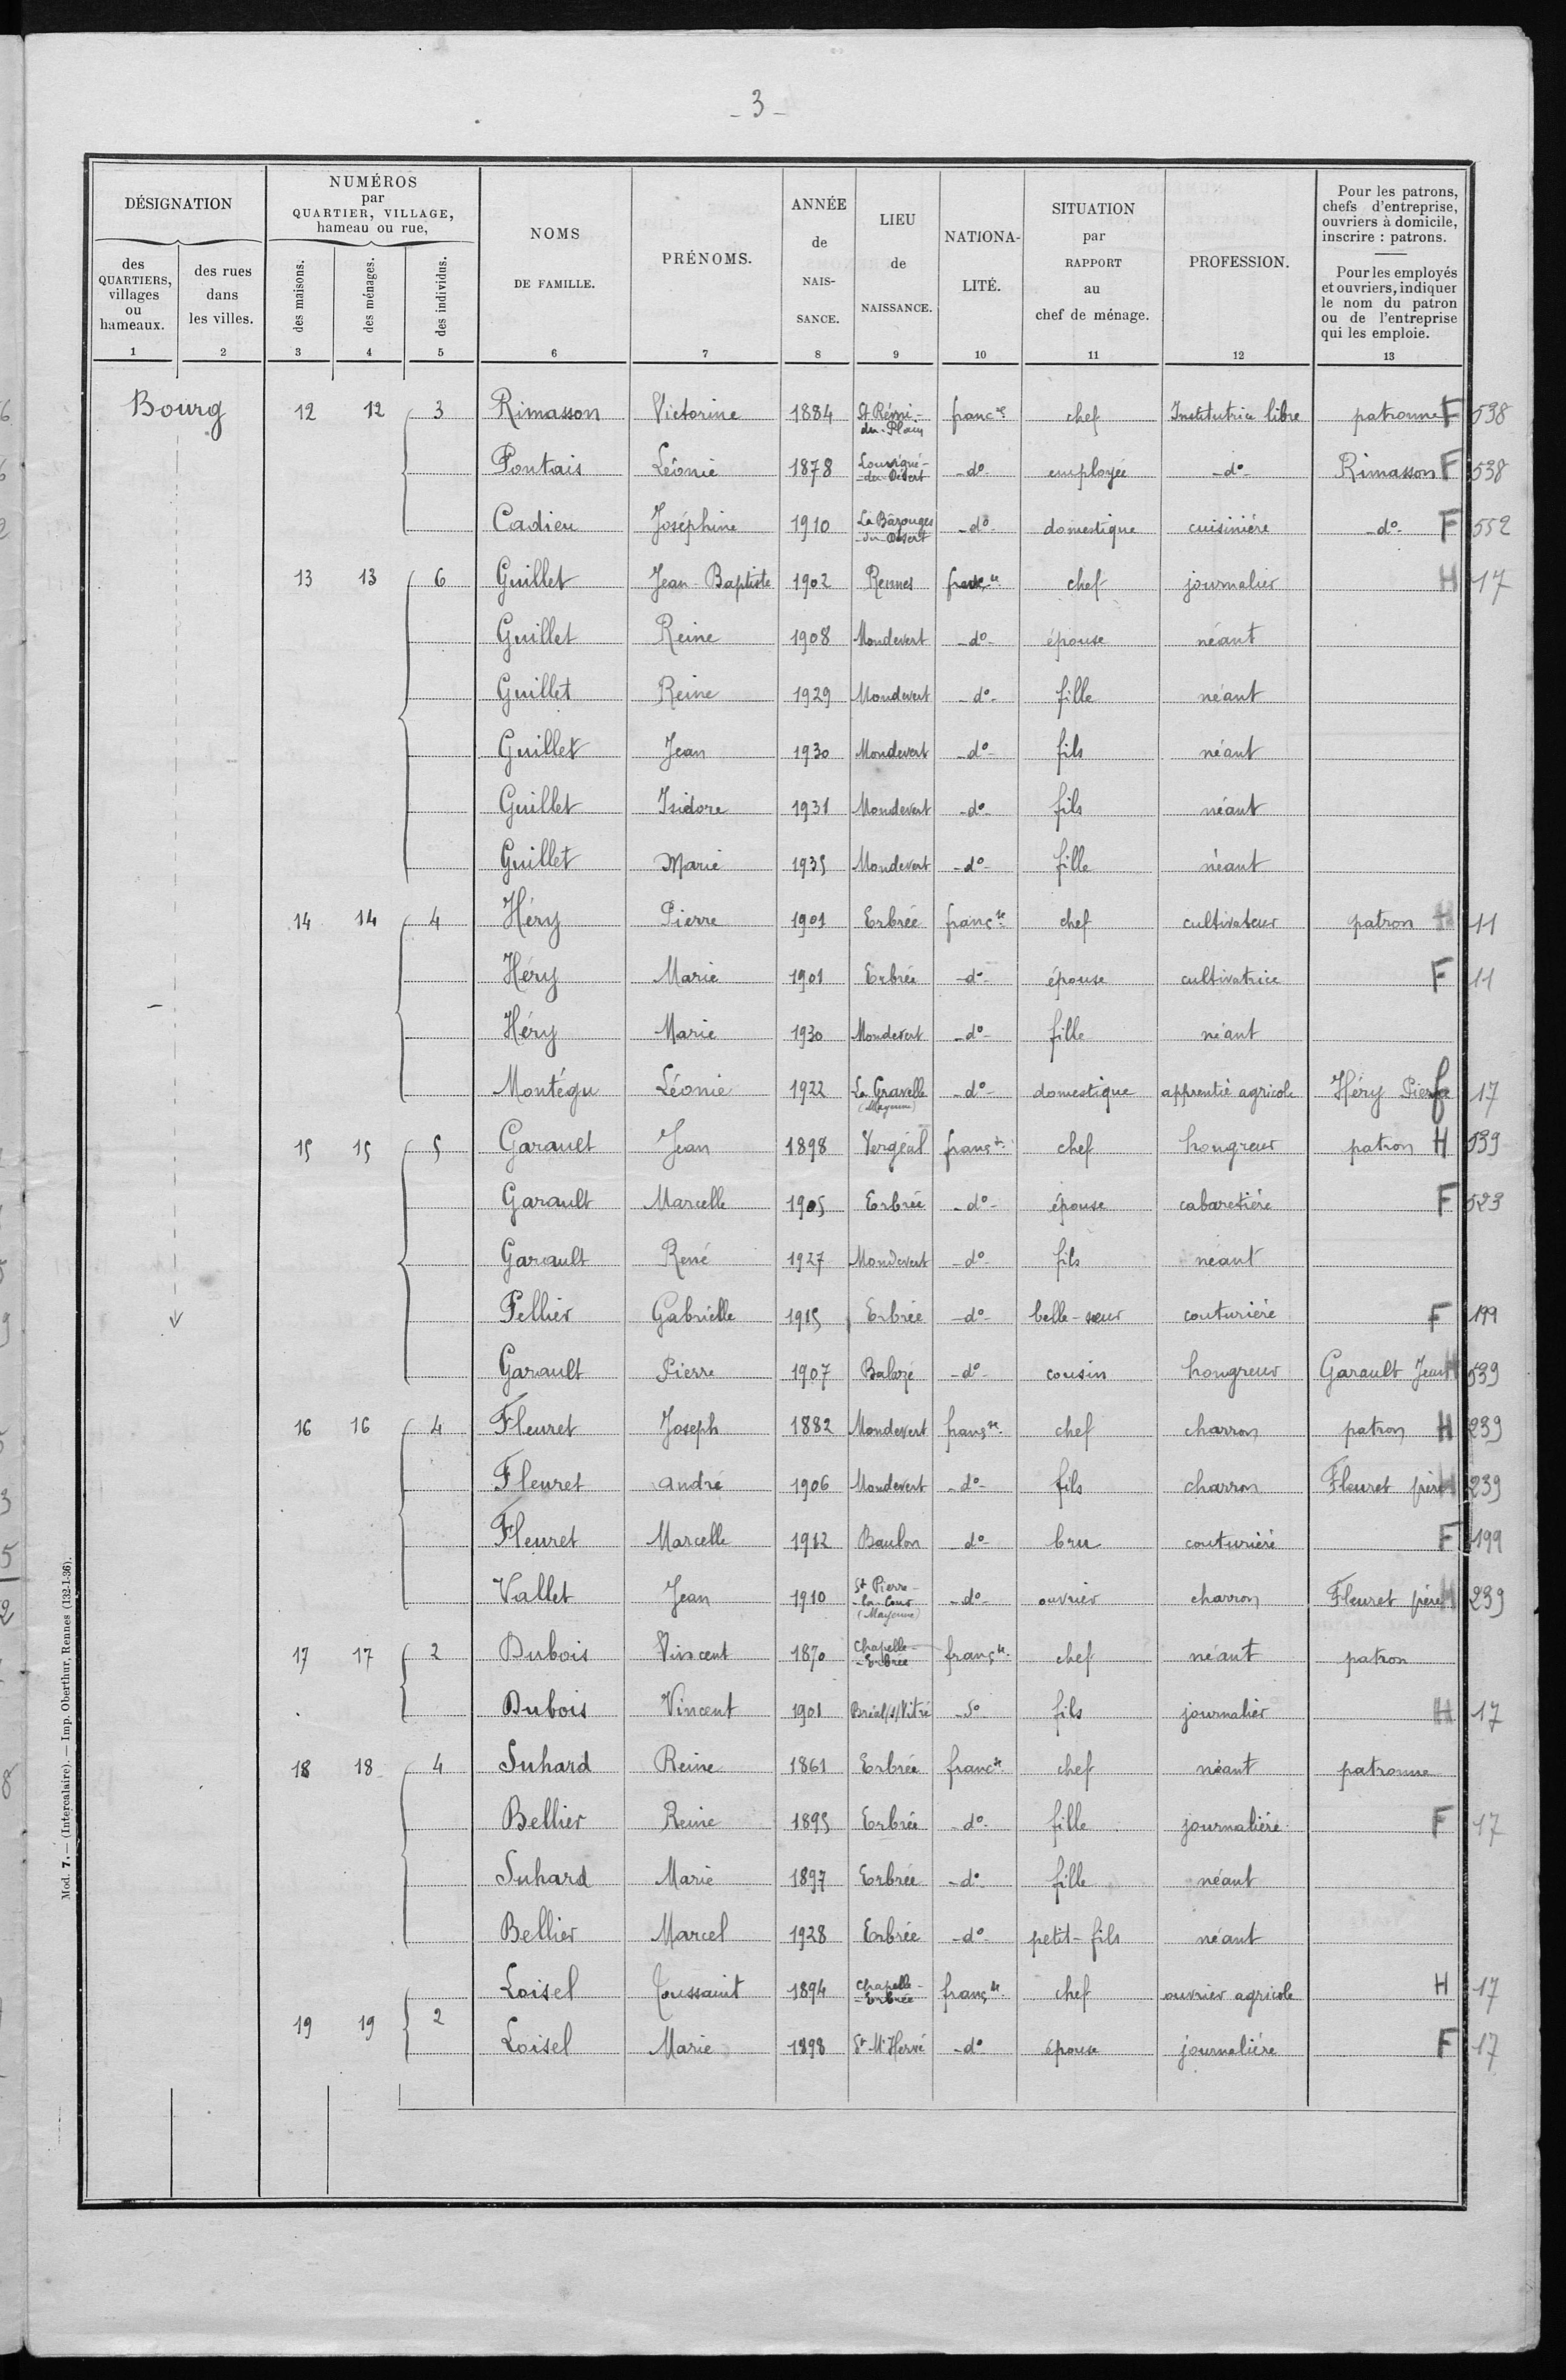 - 3 -
DÉSIGNATION
des QUARTIERS, villages ou hameaux.
des rues dans les villes.
NUMÉROS par QUARTIER, VILLAGE, hameau ou rue,
des maisons.
des ménages.
des individus.
NOMS DE FAMILLE.
PRÉNOMS.
ANNÉE de NAIS- SANCE.
LIEU de NAISSANCE.
NATIONA- LITÉ.
SITUATION par RAPPORT au chef de ménage.
PROFESSION.
Pour les patrons, chefs d'entreprise, ouvriers à domicile, inscrire : patrons.
Pour les employés et ouvriers, indiquer le nom du patron ou de l'entreprise qui les emploie.
1 2 3 4 5 6 7 8 9 10 11 12 13
Bourg 12 12 3 Rimasson Victorine 1884 St Rémi-du-Plain franc se chef Institutrice libre patronne F 538
Pontais Léonie 1878 Louvigné-du-Désert -d°- employée -d°- Rimasson F 538
Cadieu Joséphine 1910 La Bazouges-du-Désert -d°- domestique cuisinière -d°- F 552
13 13 6 Guillet Jean-Baptiste 1902 Rennes chef journalier H 17
Guillet Reine 1908 Mondevert -d°- épouse néant
Guillet Reine 1929 Mondevert -d°- fille néant
Guillet Jean 1930 Mondevert -d°- fils néant
Guillet Isidore 1931 Mondevert -d°- fils néant
Guillet Marie 1935 Mondevert -d°- fille néant
14 14 4 Héry Pierre 1901 Erbrée franç se chef cultivateur patron H 11
Héry Marie 1901 Erbrée -d°- épouse cultivatrice F 11
Héry Marie 1930 Mondevert -d°- fille néant
Montégu Léonie 1922 La Gravelle (Mayenne) -d°- domestique apprentie agricole Héry Pierre f 17
15 15 5 Garault Jean 1898 Vergéal franç se chef hongreur patron H 539
Garault Marcelle 1905 Erbrée -d°- épouse cabaretière F 523
Garault René 1927 Mondevert -d°- fils néant
Pellier Gabrielle 1915 Erbrée -d°- belle-sœur couturière F 199
Garault Pierre 1907 Balazé -d°- cousin hongreur Garault Jean H 539
16 16 4 Fleuret Joseph 1882 Mondevert franç se chef charron patron H 239
Fleuret André 1906 Mondevert -d°- fils charron Fleuret père H 239
Fleuret Marcelle 1912 Baulon -d°- bru couturière F 199
Vallet Jean 1910 St Pierre-la-Cour (Mayenne) -d°- ouvrier charron Fleuret père H 239
17 17 2 Dubois Vincent 1870 Chapelle-Erbrée franç se chef néant patron
Dubois Vincent 1901 Bréal/s/Vitré -d° fils journalier H 17
18 18 4 Suhard Reine 1861 Erbrée franc se chef néant patronne
Bellier Reine 1895 Erbrée -d°- fille journalière F 17
Suhard Marie 1897 Erbrée -d°- fille néant
Bellier Marcel 1928 Erbrée -d°- petit-fils néant
Loisel Toussaint 1894 Chapelle-Erbrée franç se chef ouvrier agricole H 17
19 19 2 Loisel Marie 1898 St M'Hervé -d° épouse journalière F 17
Mod. 7. — (Intercalaire). — Imp. Oberthur, Rennes (132-1-36).